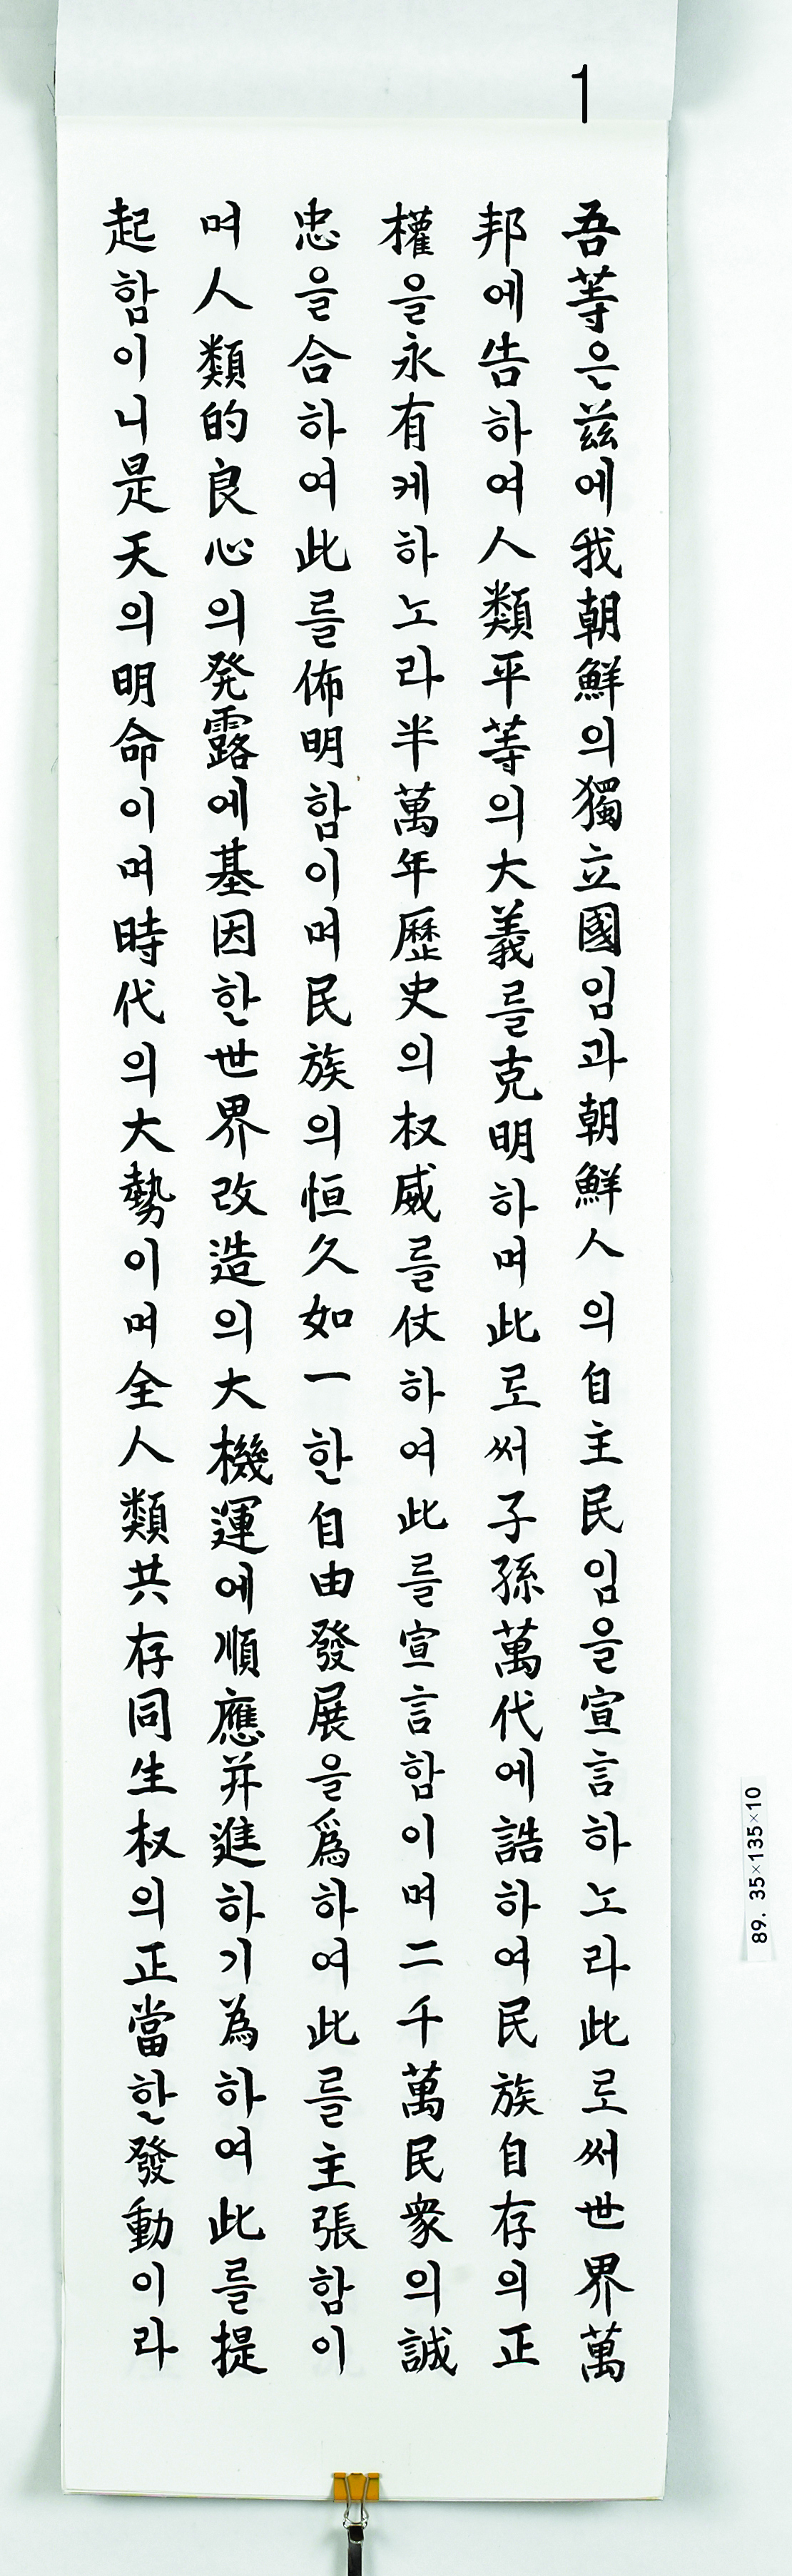 1
吾等은茲에我朝鮮의獨立國임과朝鮮人의自主民임을宣言하노라此로써世界萬
邦에告하여人類平等의大義를克明하며此로써子孫萬代에誥하여民族自存의正
權을永有케하노라半萬年歷史의权威를仗하여此를宣言함이며二千萬民衆의誠
忠을合하여此를佈明함이며民族의恒久如一한自由發展을爲하여此를主張함이
며人類的良心의発露에基因한世界改造의大機運에順應并進하기為하여此를提
起함이니是天의明命이며時代의大勢이며全人類共存同生权의正當한發動이라
89. 35×135×10